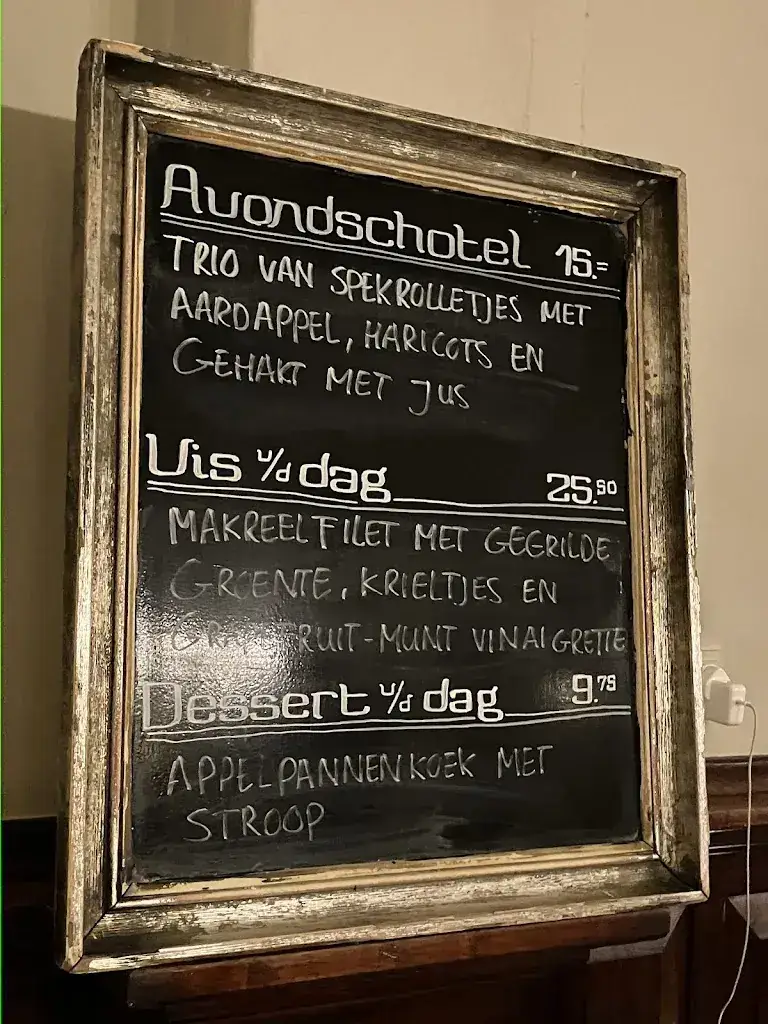 Avondschotel 15.=
TRIO VAN SPEKROLLETJES MET
AARDAPPEL, HARICOTS EN
GEHAKT MET JUS
Vis v/d dag 25.50
MAKREELFILET MET GEGRILDE
GROENTE, KRIELTJES EN
GRAPEFRUIT-MUNT VINAIGRETTE
Dessert v/d dag 9.75
APPELPANNENKOEK MET
STROOP